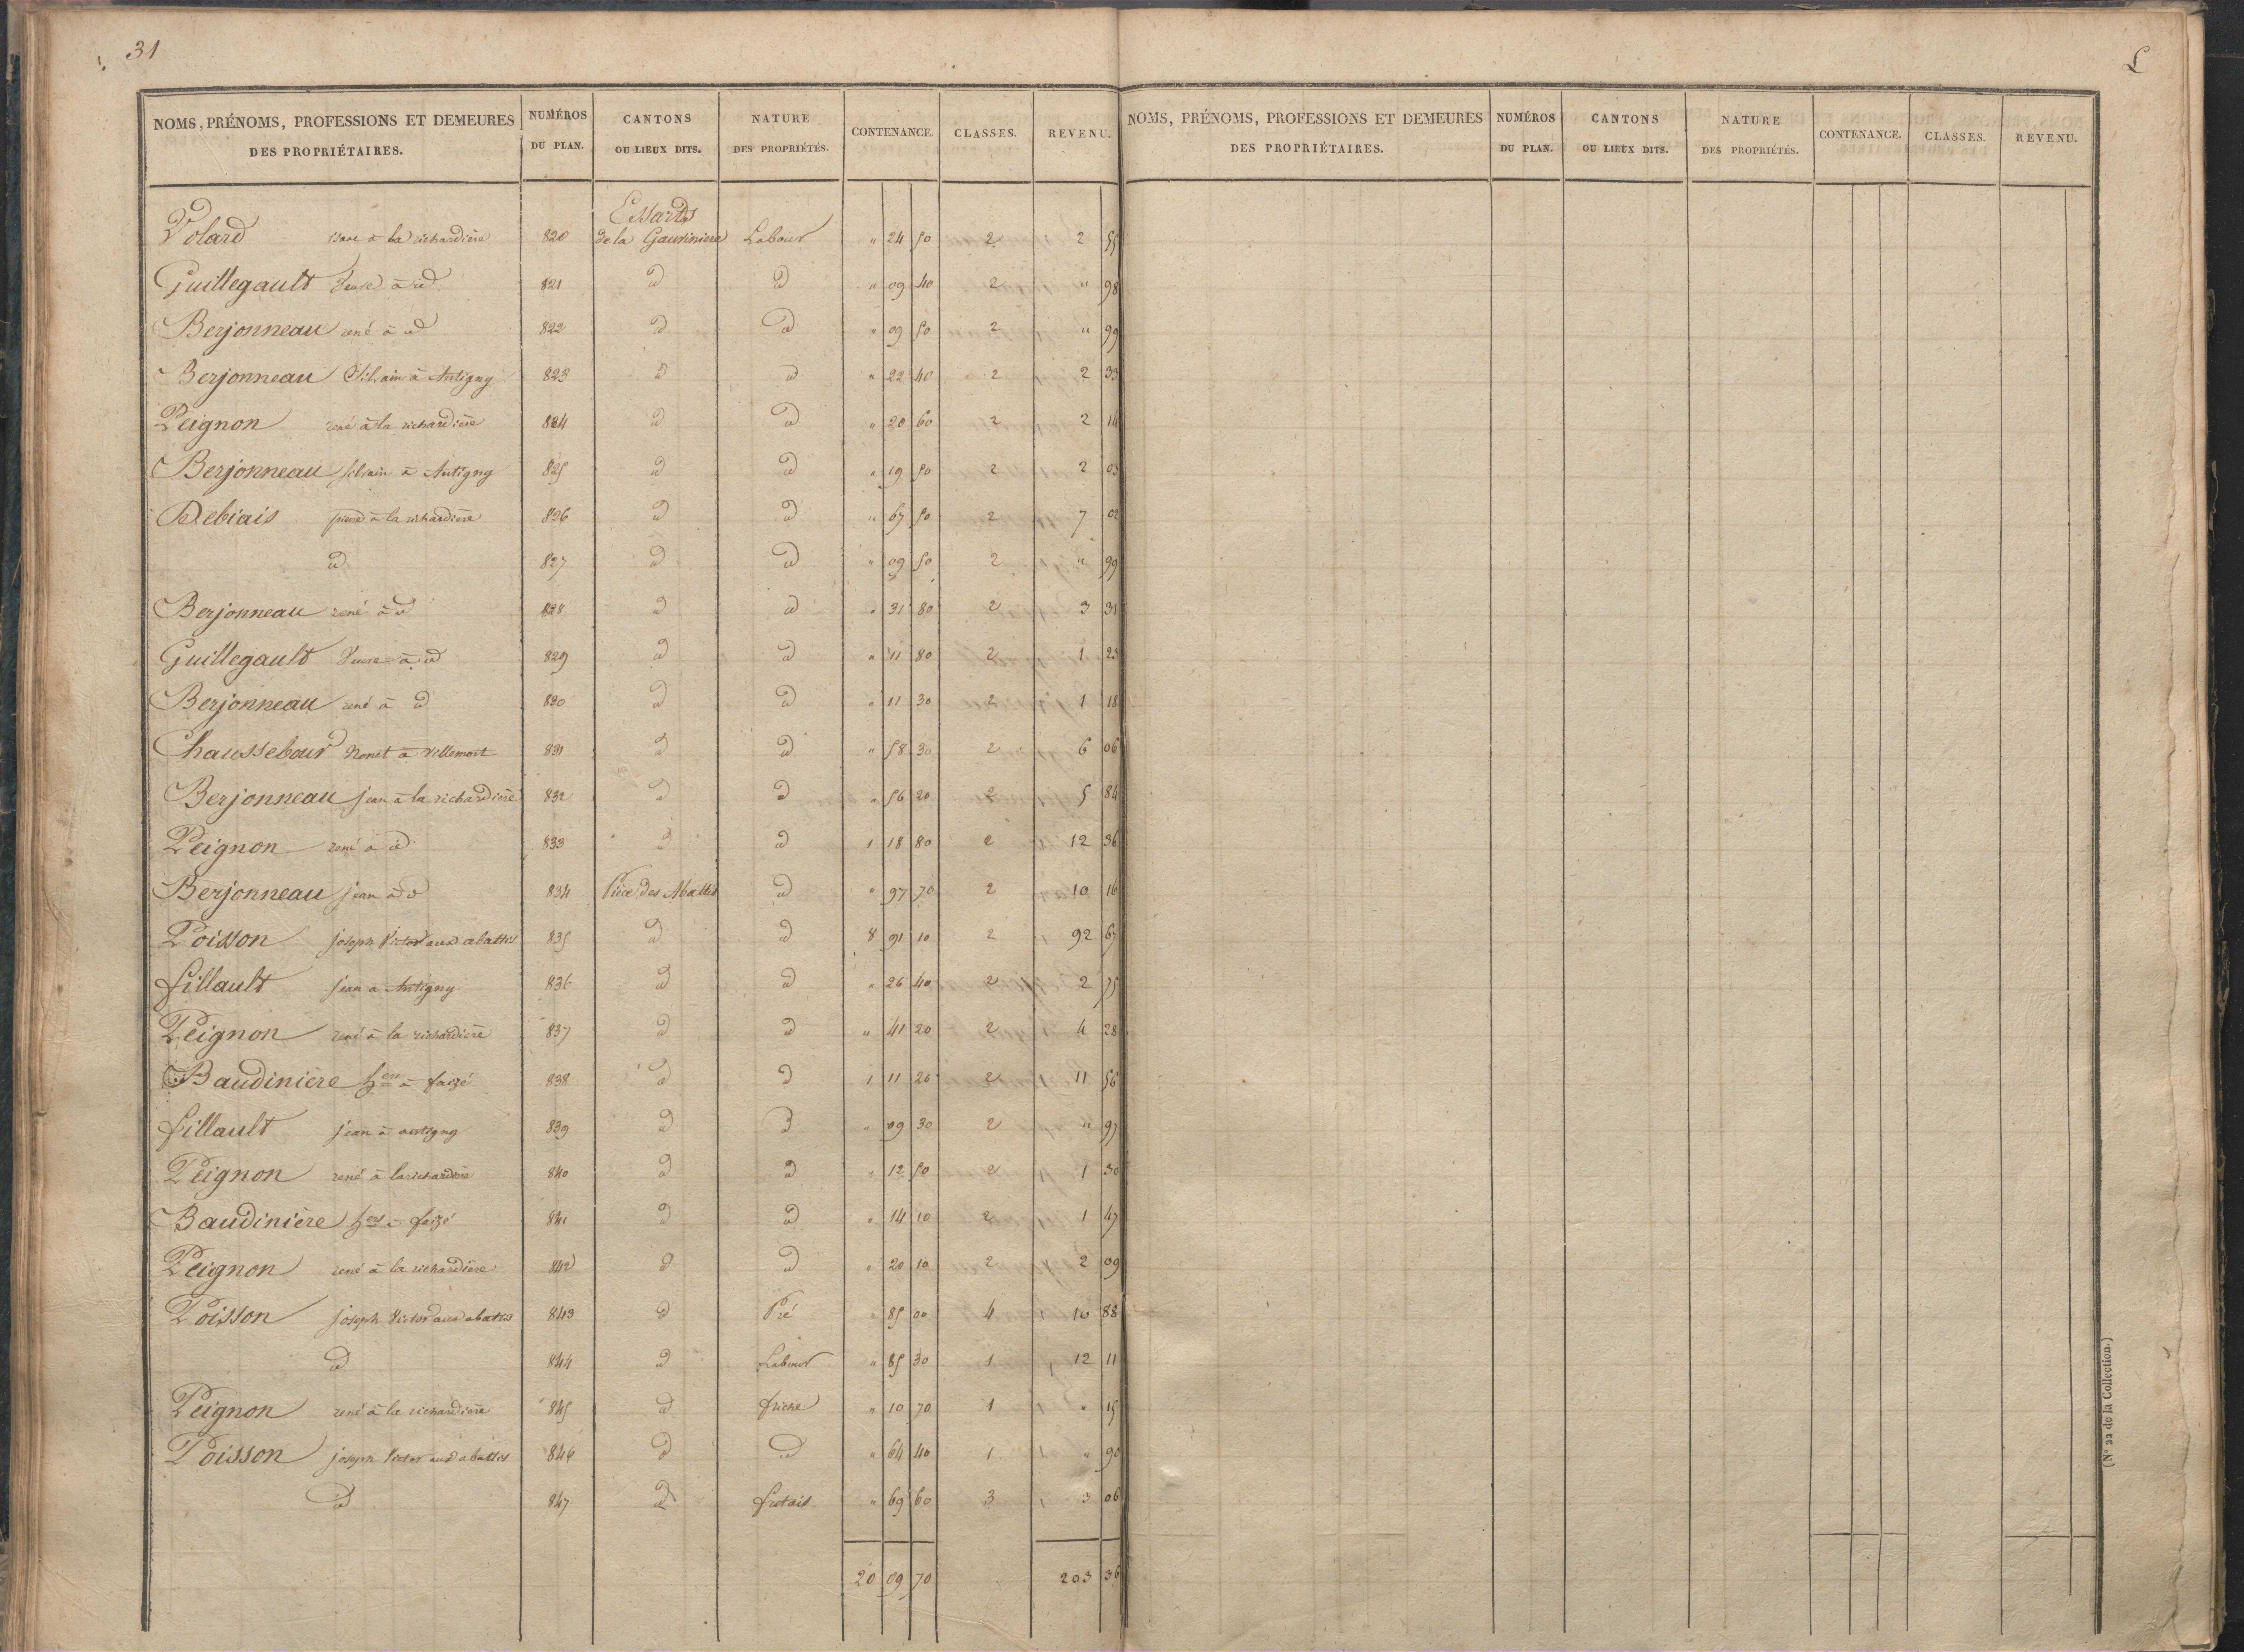 31
L
NOMS, PRÉNOMS, PROFESSIONS ET DEMEURES DES PROPRIÉTAIRES. NUMÉROS DU PLAN. CANTONS OU LIEUX DITS. NATURE DES PROPRIÉTÉS. CONTENANCE. CLASSES. REVENU.
Essards
Volard à la richardière 820 de la Gaurinière Labour " 24 50 2 2 55
Guillegault Veuve à id 821 id id " 09 40 2 " 98
Berjonneau rené à id 822 id id " 09 50 2 " 99
Berjonneau Silvain à Antigny 823 id id " 22 40 2 2 33
Peignon rené à la richardière 824 id id " 20 60 2 2 14
Berjonneau silvain à Antigny 825 id id " 19 50 2 2 03
Debiais pierre à la richardière 826 id id " 67 50 2 7 02
id 827 id id " 09 50 2 " 99
Berjonneau rené à id 828 id id " 31 80 2 3 31
Guillegault Veuve à id 829 id id " 11 80 2 1 23
Berjonneau rené à id 830 id id " 11 30 2 1 18
Chaussebour à Villemort 831 id id " 58 30 2 6 06
Berjonneau jean à la richardière 832 id id " 56 20 2 5 84
Peignon rené à id 833 id id 1 18 80 2 12 36
Berjonneau jean à id 834 Pièce des Abattis id " 97 70 2 10 16
Poisson joseph Victor aux abattis 835 id id 8 91 10 2 92 67
fillault jean à Antigny 836 id id " 26 40 2 2 75
Peignon rené à la richardière 837 id id " 41 20 2 4 28
Baudinière à faizé 838 id id 1 11 20 2 11 56
fillault jean à antigny 839 id id " 09 30 2 " 97
Peignon rené à la richardière 840 id id " 12 50 2 1 30
Baudinière à faizé 841 id id " 14 10 2 1 47
Peignon rené à la richardière 842 id id " 20 10 2 2 09
Poisson joseph Victor aux abattis 843 id Pré " 85 00 4 10 88
id 844 id Labour " 85 30 1 12 11
Peignon rené à la richardière 845 id friche " 10 70 1 " 15
Poisson joseph Victor aux abattis 846 id id " 64 40 1 " 90
id 847 id futais " 69 60 3 3 06
20 09 70 203 36
NOMS, PRÉNOMS, PROFESSIONS ET DEMEURES DES PROPRIÉTAIRES. NUMÉROS DU PLAN. CANTONS OU LIEUX DITS. NATURE DES PROPRIÉTÉS. CONTENANCE. CLASSES. REVENU.
(N° 22 de la Collection.)